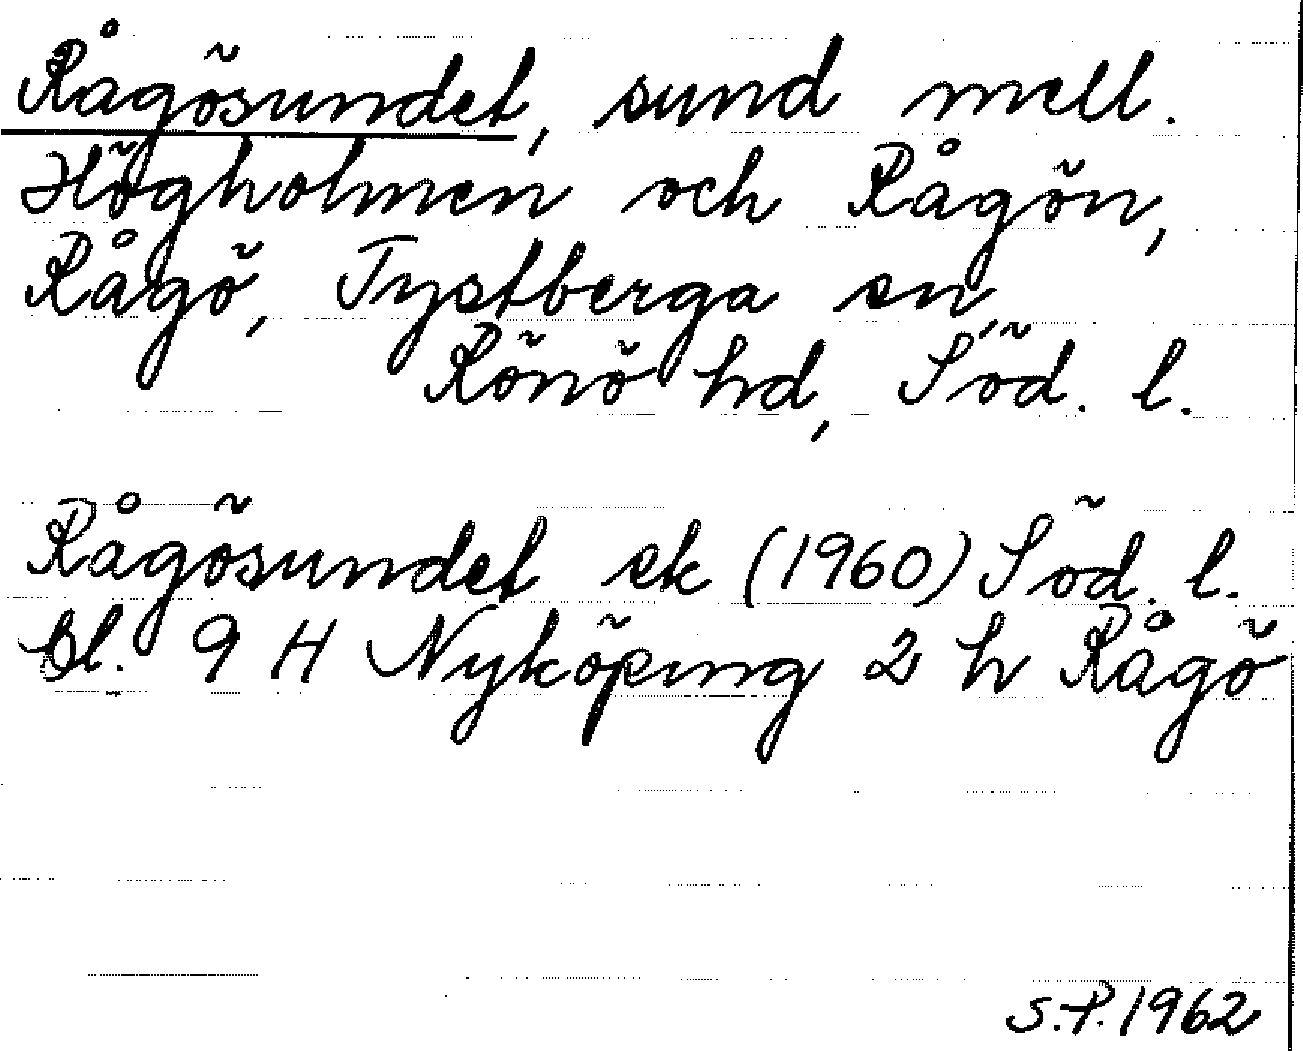 Rågösundet, sund mell.
Högholmen och Rågön,
Rågö, Tystberga sn,
Rönö hd, Söd. l.
Rågösundet ek (1960) Söd. l.
bl. 9 H Nyköping 2 h Rågö
S.P. 1962